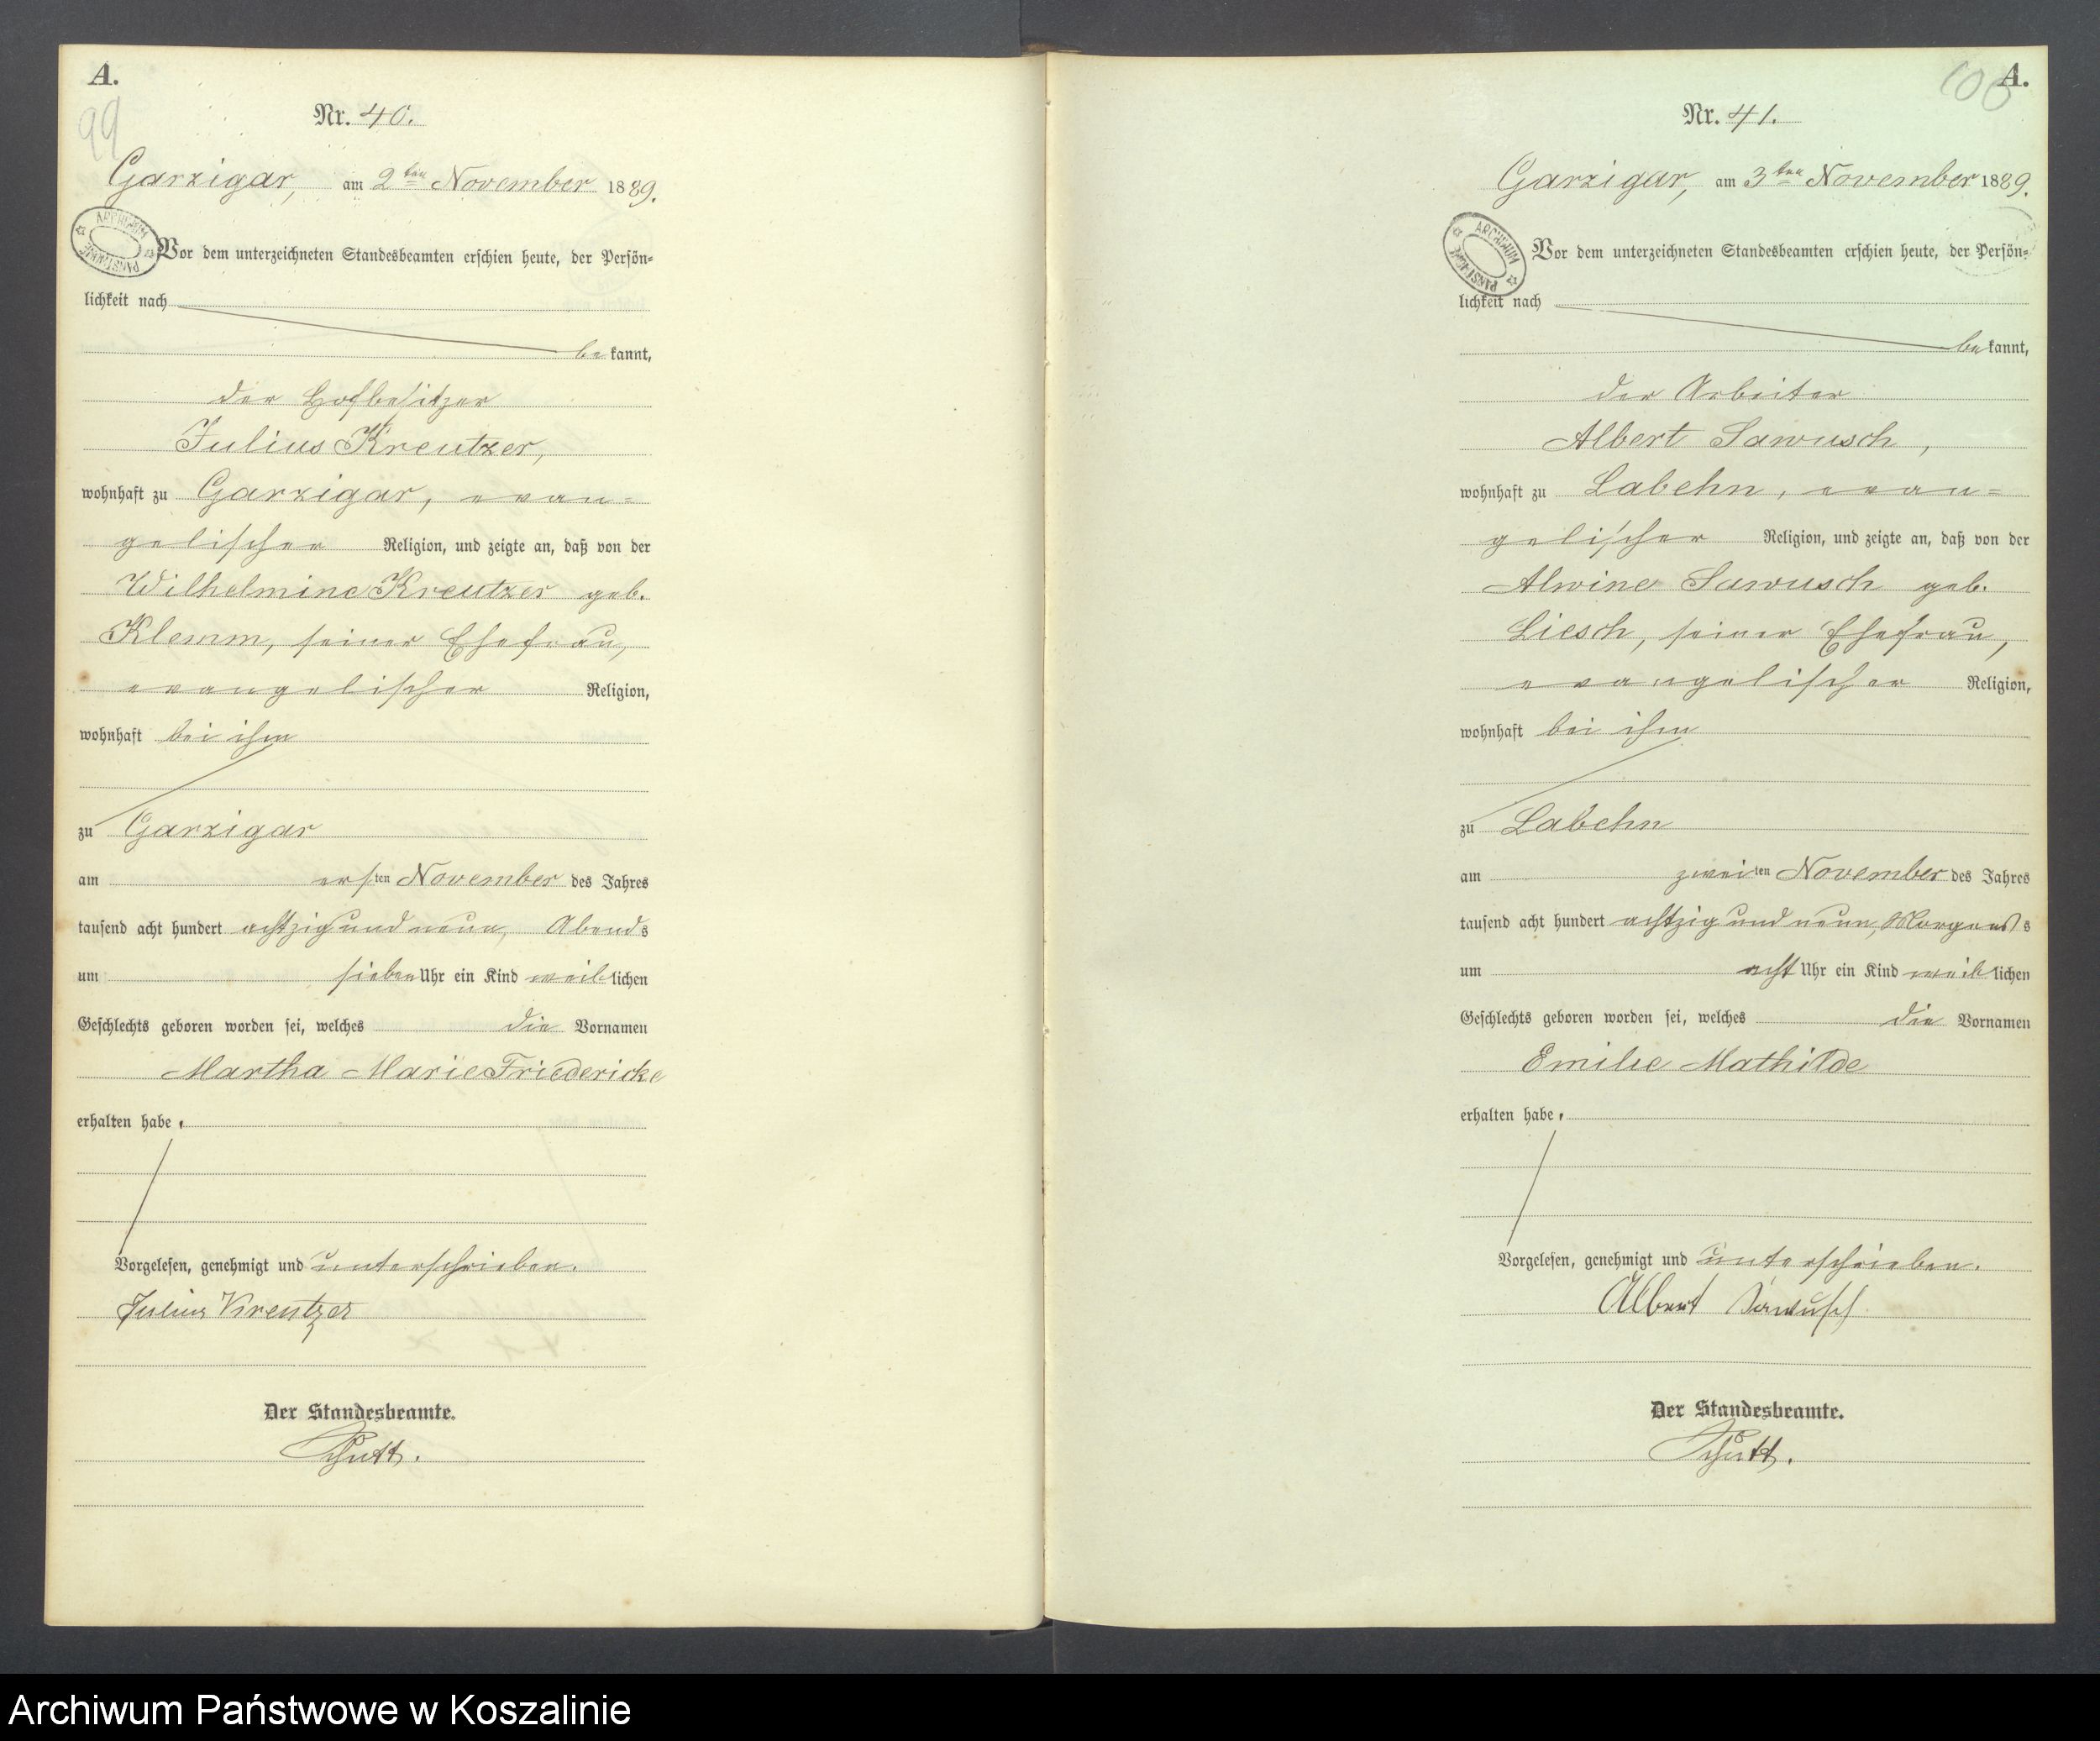 A.
99
Nr. 40.
Garzigar, am 2ten November 1889.
ARCHIWUM PAŃSTWOWE
Vor dem unterzeichneten Standesbeamten erschien heute, der Persön-
lichkeit nach
bekannt,
der Hofbesitzer
Julius Kreutzer,
wohnhaft zu Garzigar, evan-
gelischer Religion, und zeigte an, daß von der
Wilhelmine Kreutzer geb.
Klemm, seiner Ehefrau,
evangelischer Religion,
wohnhaft bei ihm
zu Garzigar
am ersten November des Jahres
tausend acht hundert achtzig und neun, Abends
um sieben Uhr ein Kind weiblichen
Geschlechts geboren worden sei, welches die Vornamen
Martha Marie Friedericke
erhalten habe.
Vorgelesen, genehmigt und unterschrieben.
Julius Kreutzer
Der Standesbeamte.
Schütt.
A.
100
Nr. 41.
Garzigar, am 3ten November 1889.
ARCHIWUM PAŃSTWOWE
Vor dem unterzeichneten Standesbeamten erschien heute, der Persön-
lichkeit nach
bekannt,
der Arbeiter
Albert Sawusch,
wohnhaft zu Labehn, evan-
gelischer Religion, und zeigte an, daß von der
Alwine Sawusch geb.
Liesch, seiner Ehefrau,
evangelischer Religion,
wohnhaft bei ihm
zu Labehn
am zweiten November des Jahres
tausend acht hundert achtzig und neun, Morgens
um acht Uhr ein Kind weiblichen
Geschlechts geboren worden sei, welches die Vornamen
Emilie Mathilde
erhalten habe.
Vorgelesen, genehmigt und unterschrieben.
Albert Sawusch
Der Standesbeamte.
Schütt.
Archiwum Państwowe w Koszalinie